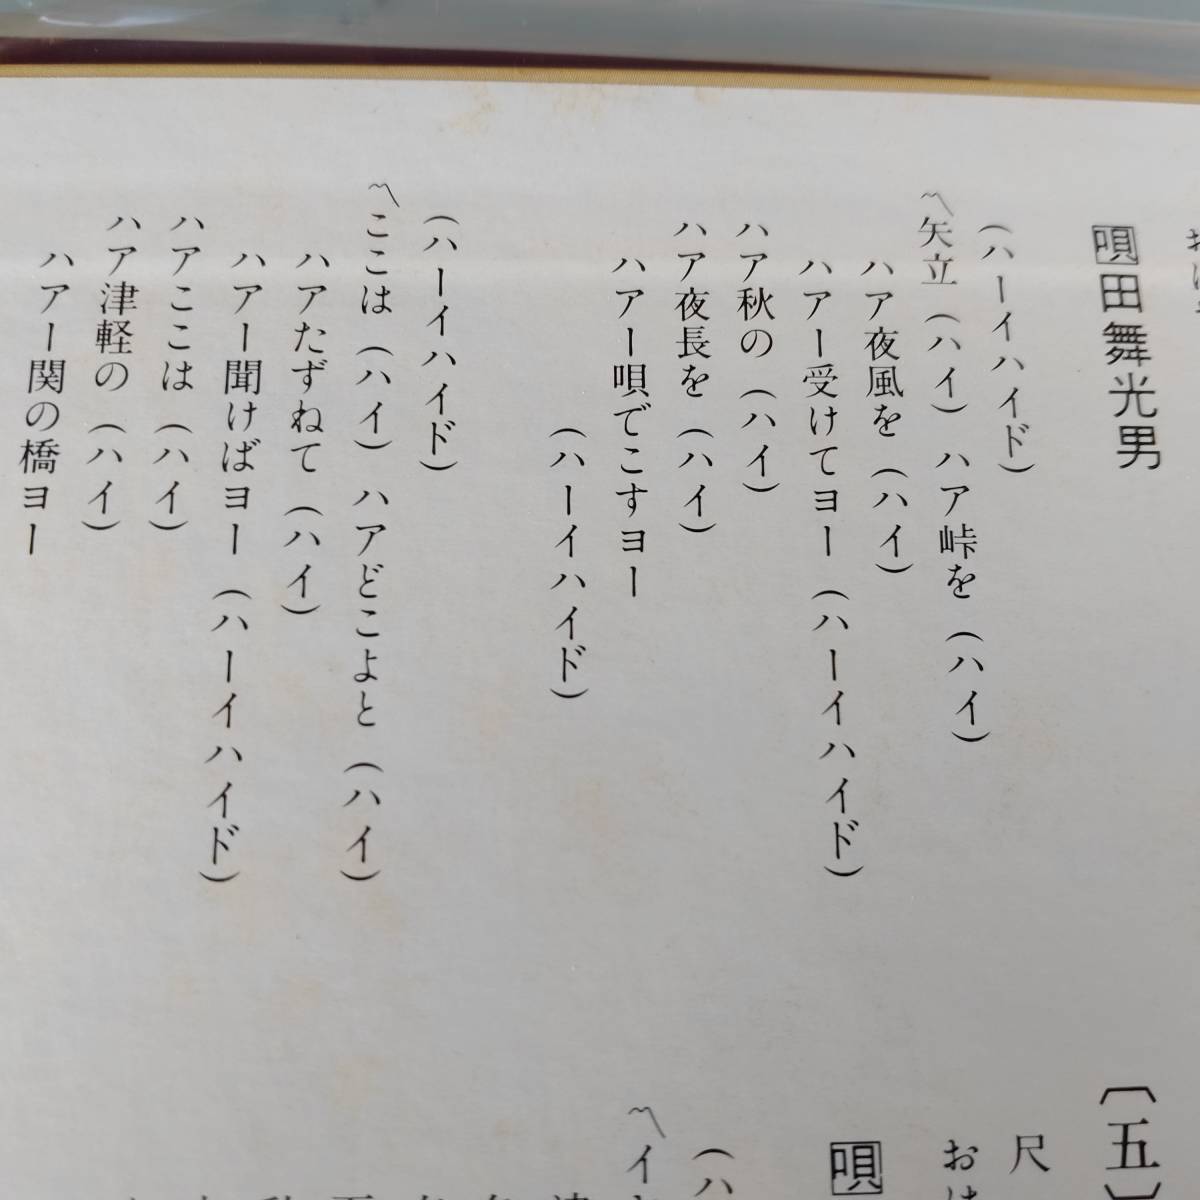 唄田舞光男
(ハーイハイド)
〽矢立(ハイ)ハア峠を(ハイ)
ハア夜風を(ハイ)
ハアー受けてヨー(ハーイハイド)
ハア秋の(ハイ)
ハア夜長を(ハイ)
ハアー唄でこすヨー
(ハーイハイド)
(ハーイハイド)
〽ここは(ハイ)ハアどこよと(ハイ)
ハアたずねて(ハイ)
ハアー聞けばヨー(ハーイハイド)
ハアここは(ハイ)
ハア津軽の(ハイ)
ハアー関の橋ヨー
〔五〕
尺
おは
唄
(ハ
〽イ